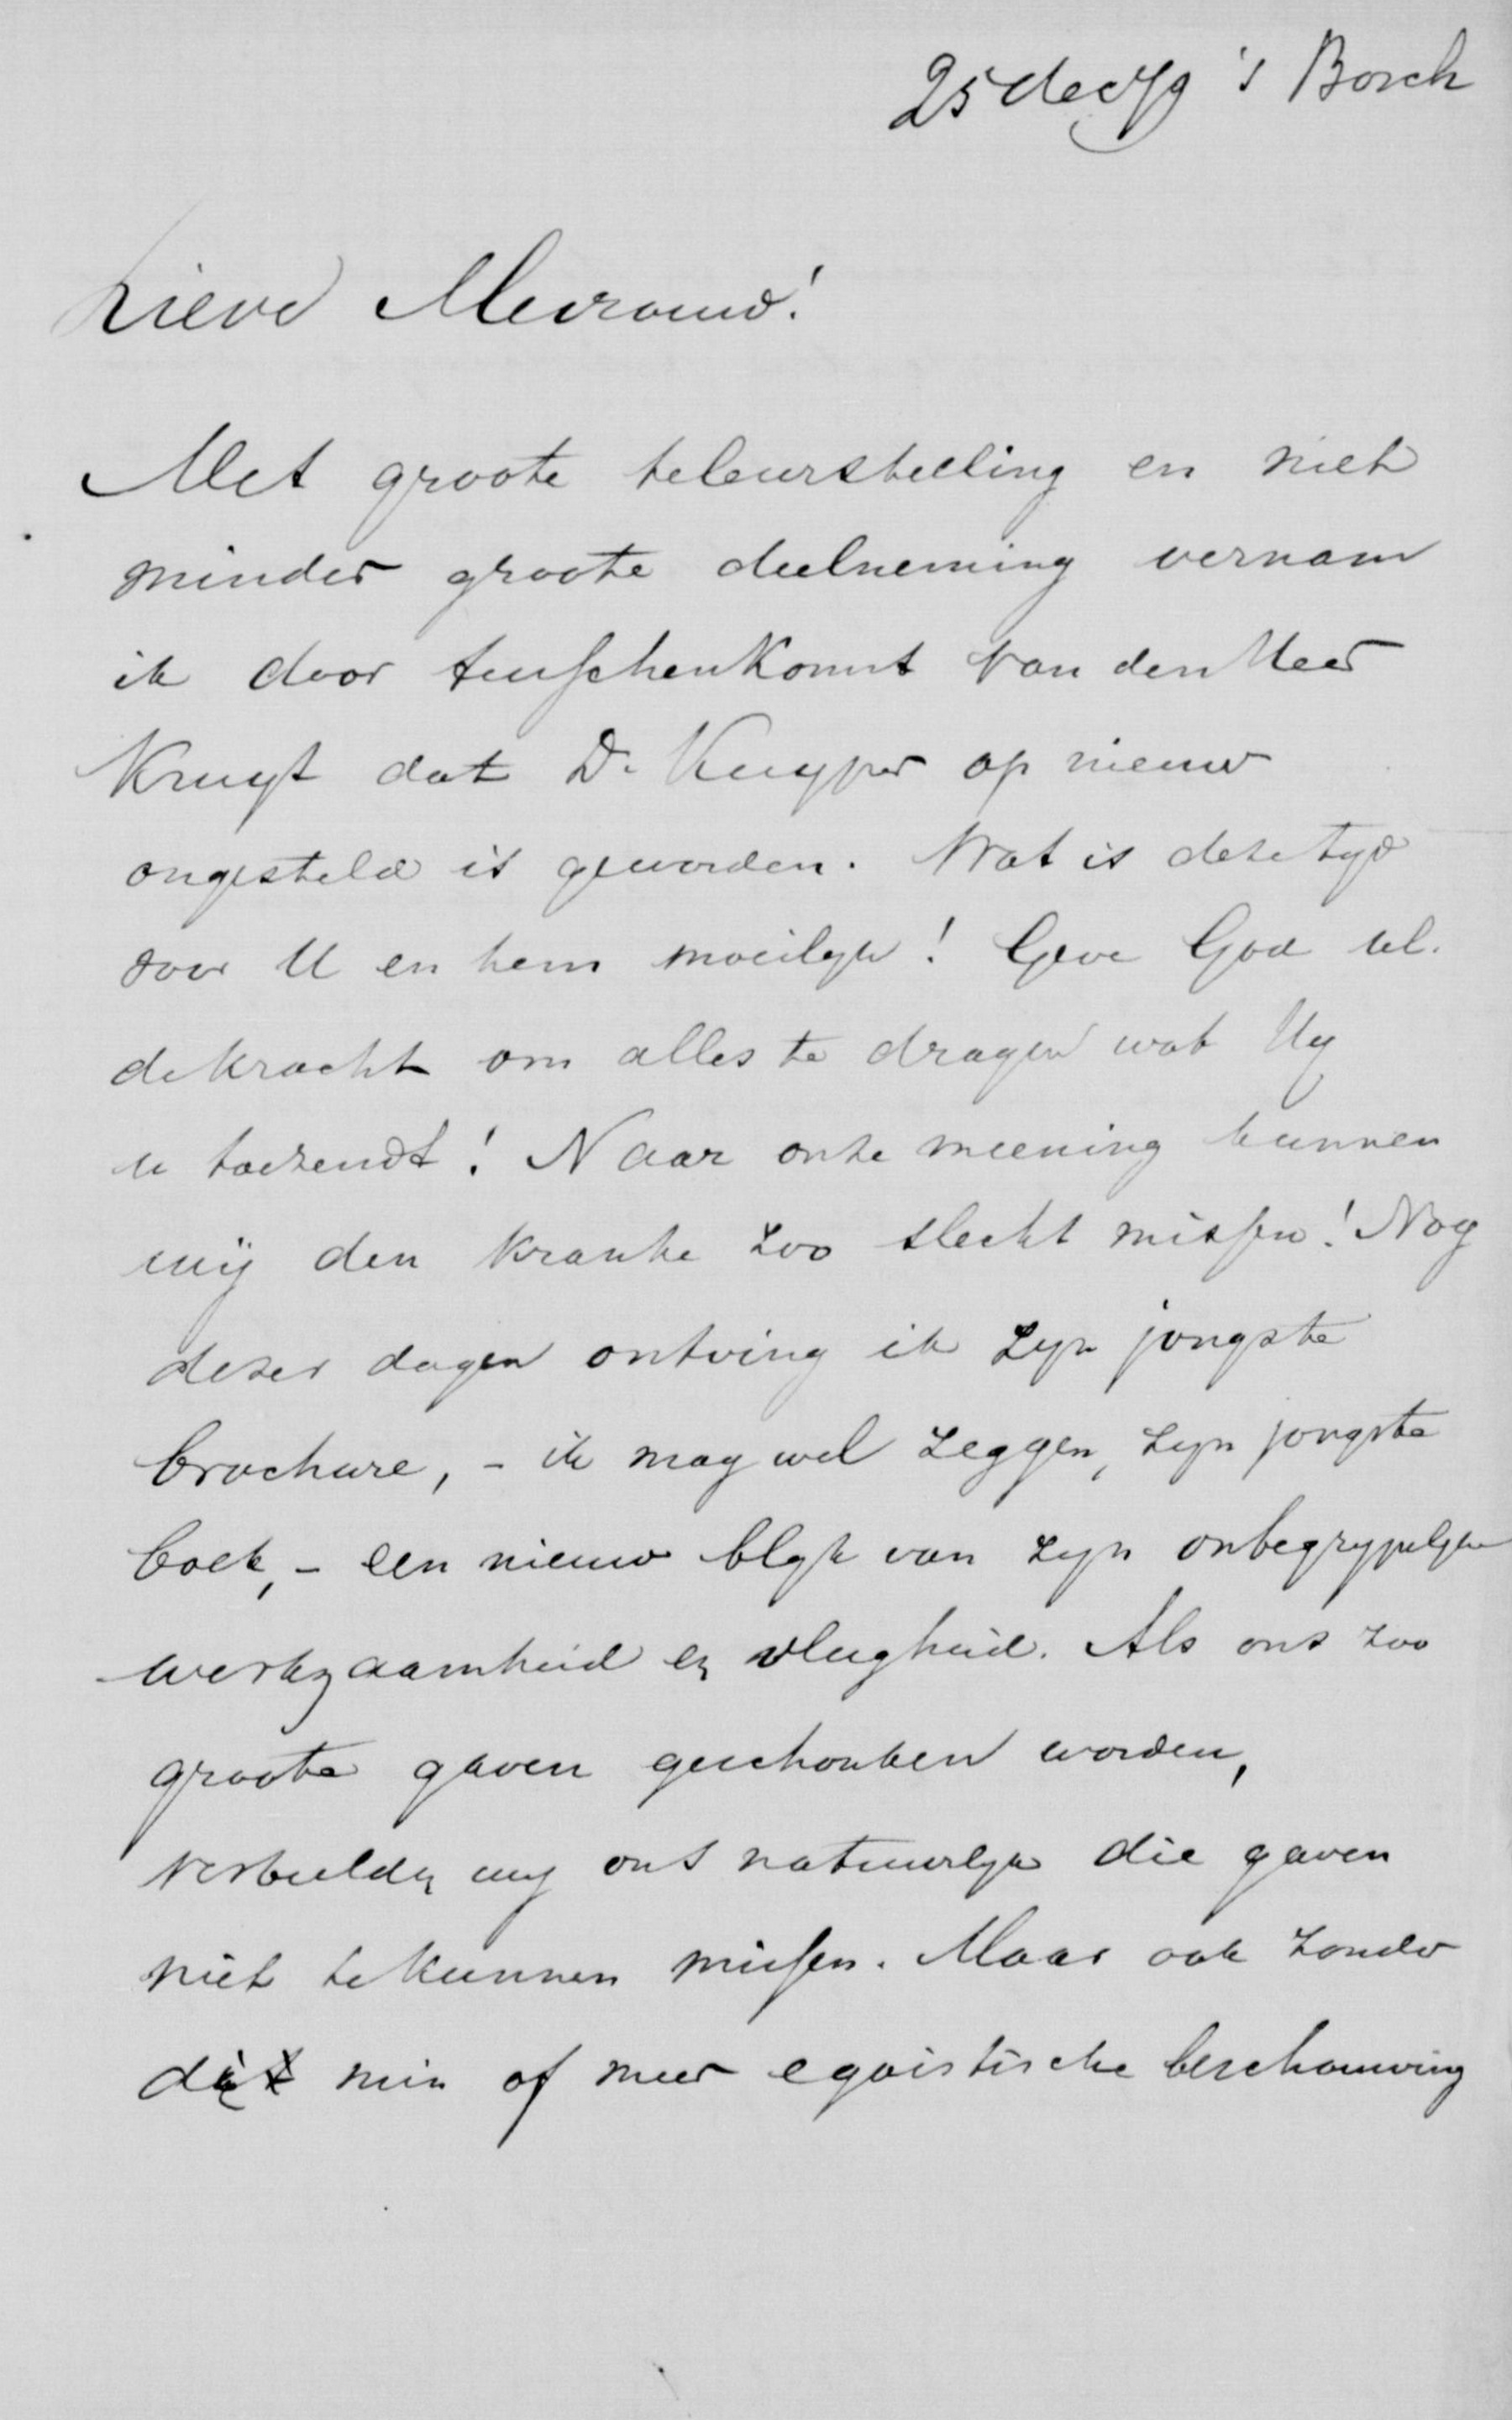 25 dec 79 's Bosch
Lieve Mevrouw!
Met groote teleurstelling en niet
minder groote deelneming vernam
ik door tusschenkomst van den Heer
Kruyt dat Dr Kuyper op nieuw
ongesteld is geworden. Wat is deze tyd
voor U en hem moeilyk! Geve God Ul.
de kracht om alles te dragen wat Hy
u toezendt! Naar onze meening kunnen
wij den kranke zoo slecht missen! Nog
dezer dagen ontving ik zyn jongste
brochure, - ik mag wel zeggen, zyn jongste
boek, - een nieuw blyk van zyn onbegrypelyke
werkzaamheid en vlugheid. Als ons zoo
groote gaven geschonken worden,
verbeelden wy ons natuurlyk die gaven
niet te kunnen missen. Maar ook zonder
die min of meer egoistische beschouwing